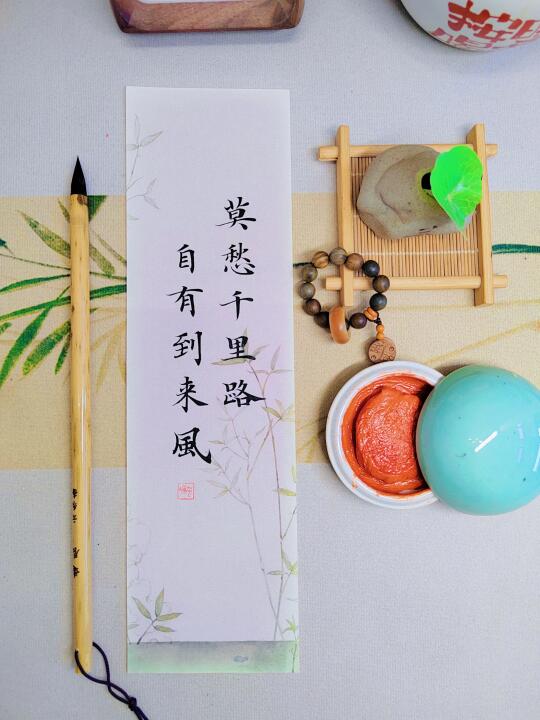 莫愁千里路
自有到来風